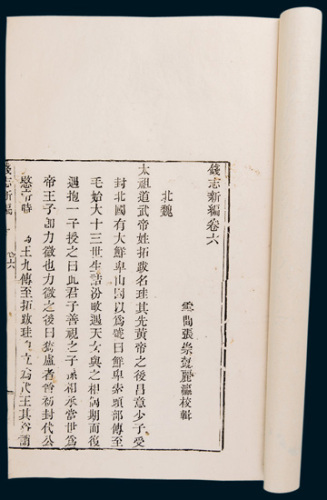 錢志新編卷六
雲間張崇懿麗瀛校輯
北魏
太祖道武帝姓拓跋名珪其先黃帝之後昌意少子受
封北國有大鮮卑山因以為號曰鮮卑索頭部傳至
毛始大十三世生詰汾畋遇天女與之相偶期而復
遇抱一子授之曰此君子善視之子孫相承當世為
帝王子即力微也力微之後曰猗盧者晉初封代公
愍帝時 王九傳至拓跋珪 為代王其
錢志新編